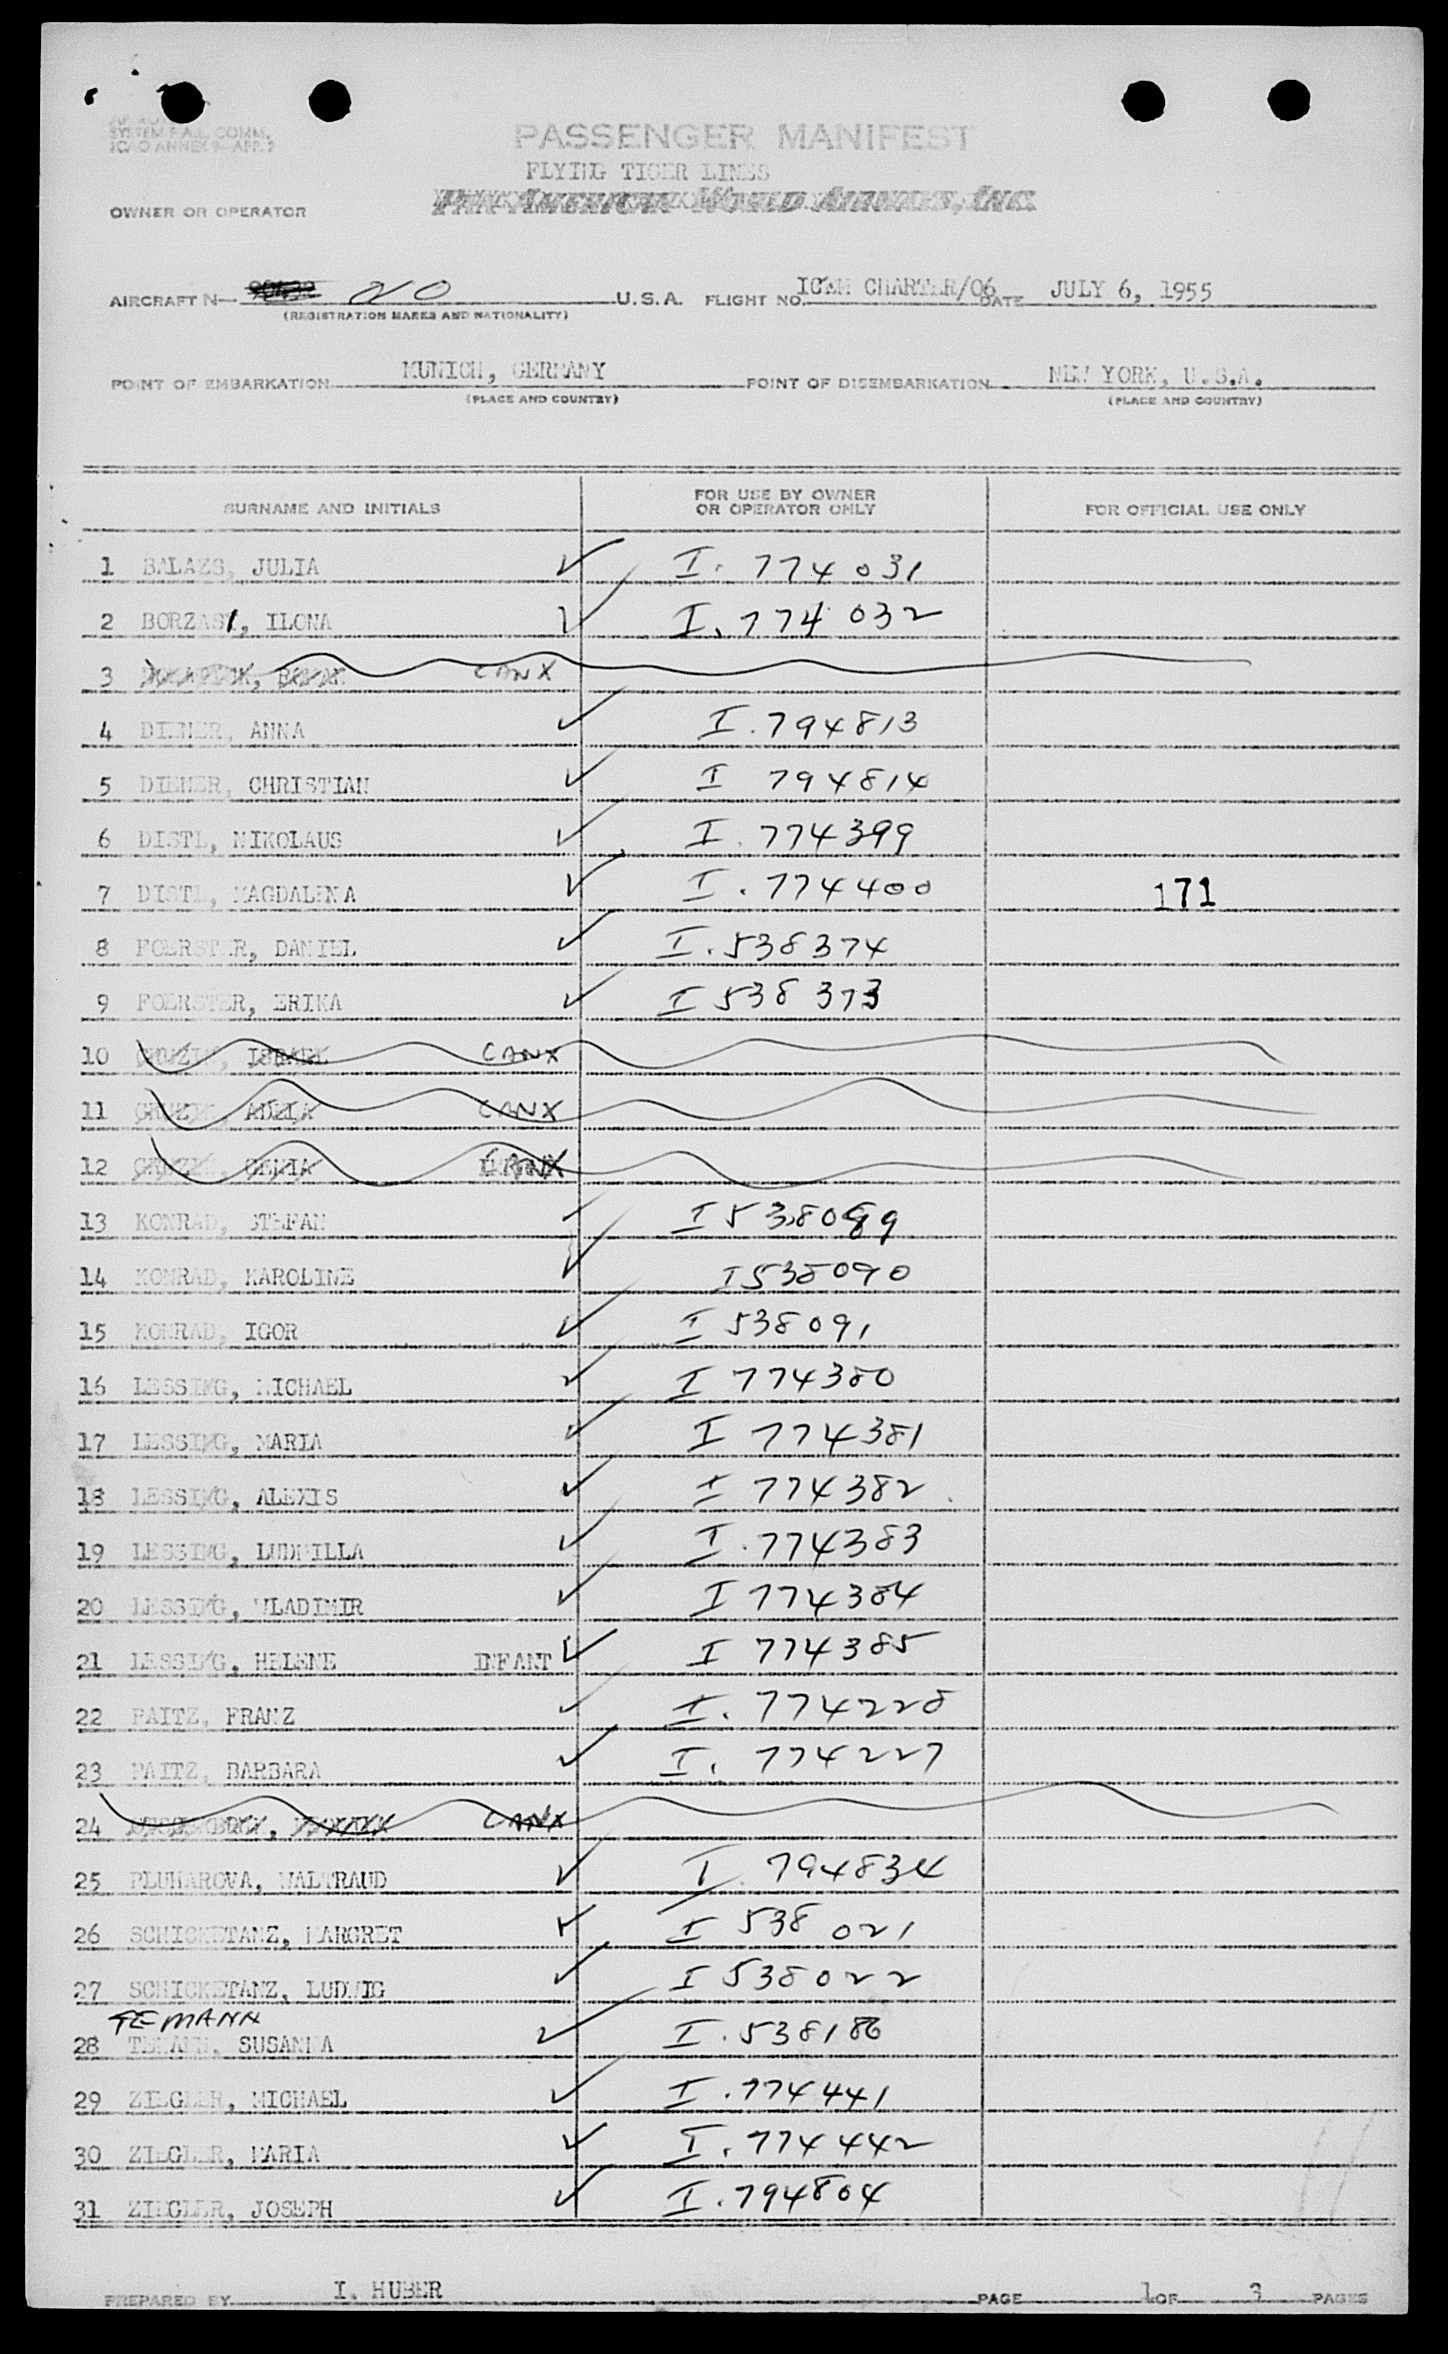 SYSTEM F.A.L. COMM.
ICAO ANNEX 9—APP. 2
PASSENGER MANIFEST
FLYING TIGER LINES
OWNER OR OPERATOR PAN AMERICAN WORLD AIRWAYS, INC.
AIRCRAFT N— NO U.S.A. FLIGHT NO. ICEM CHARTER/06 DATE JULY 6, 1955
(REGISTRATION MARKS AND NATIONALITY)
POINT OF EMBARKATION MUNICH, GERMANY POINT OF DISEMBARKATION NEW YORK, U.S.A.
(PLACE AND COUNTRY) (PLACE AND COUNTRY)
SURNAME AND INITIALS FOR USE BY OWNER OR OPERATOR ONLY FOR OFFICIAL USE ONLY
1 BALAZS, JULIA ✓ I. 774031
2 BORZASI, ILONA ✓ I. 774032
3 CANX
4 DIENER, ANNA ✓ I. 794813
5 DIENER, CHRISTIAN ✓ I 794814
6 DISTL, NIKOLAUS ✓ I. 774399
7 DISTL, MAGDALENA ✓ I. 774400 171
8 FOERSTER, DANIEL ✓ I. 538374
9 FOERSTER, ERIKA ✓ I 538373
10 CANX
11 ADELA CANX
12 GENIA CANX
13 KONRAD, STEFAN ✓ I 538089
14 KONRAD, KAROLINE ✓ I 538090
15 KONRAD, IGOR ✓ I 538091
16 LESSING, MICHAEL ✓ I 774380
17 LESSING, MARIA ✓ I 774381
18 LESSING, ALEXIS ✓ I 774382
19 LESSING, LUDMILLA ✓ I. 774383
20 LESSING, WLADIMIR ✓ I 774384
21 LESSING, HELENE INFANT ✓ I 774385
22 PAITZ, FRANZ ✓ I. 774228
23 PAITZ, BARBARA ✓ I. 774227
24 CANX
25 PLUHAROVA, WALTRAUD ✓ I. 794834
26 SCHICKETANZ, MARGRET ✓ I 538021
27 SCHICKETANZ, LUDWIG ✓ I 538022
TEMANN
28 TEMANN, SUSANNA ✓ I. 538186
29 ZIEGLER, MICHAEL ✓ I. 774441
30 ZIEGLER, MARIA ✓ I. 774442
31 ZIEGLER, JOSEPH ✓ I. 794804
PREPARED BY I. HUBER PAGE 1 OF 3 PAGES